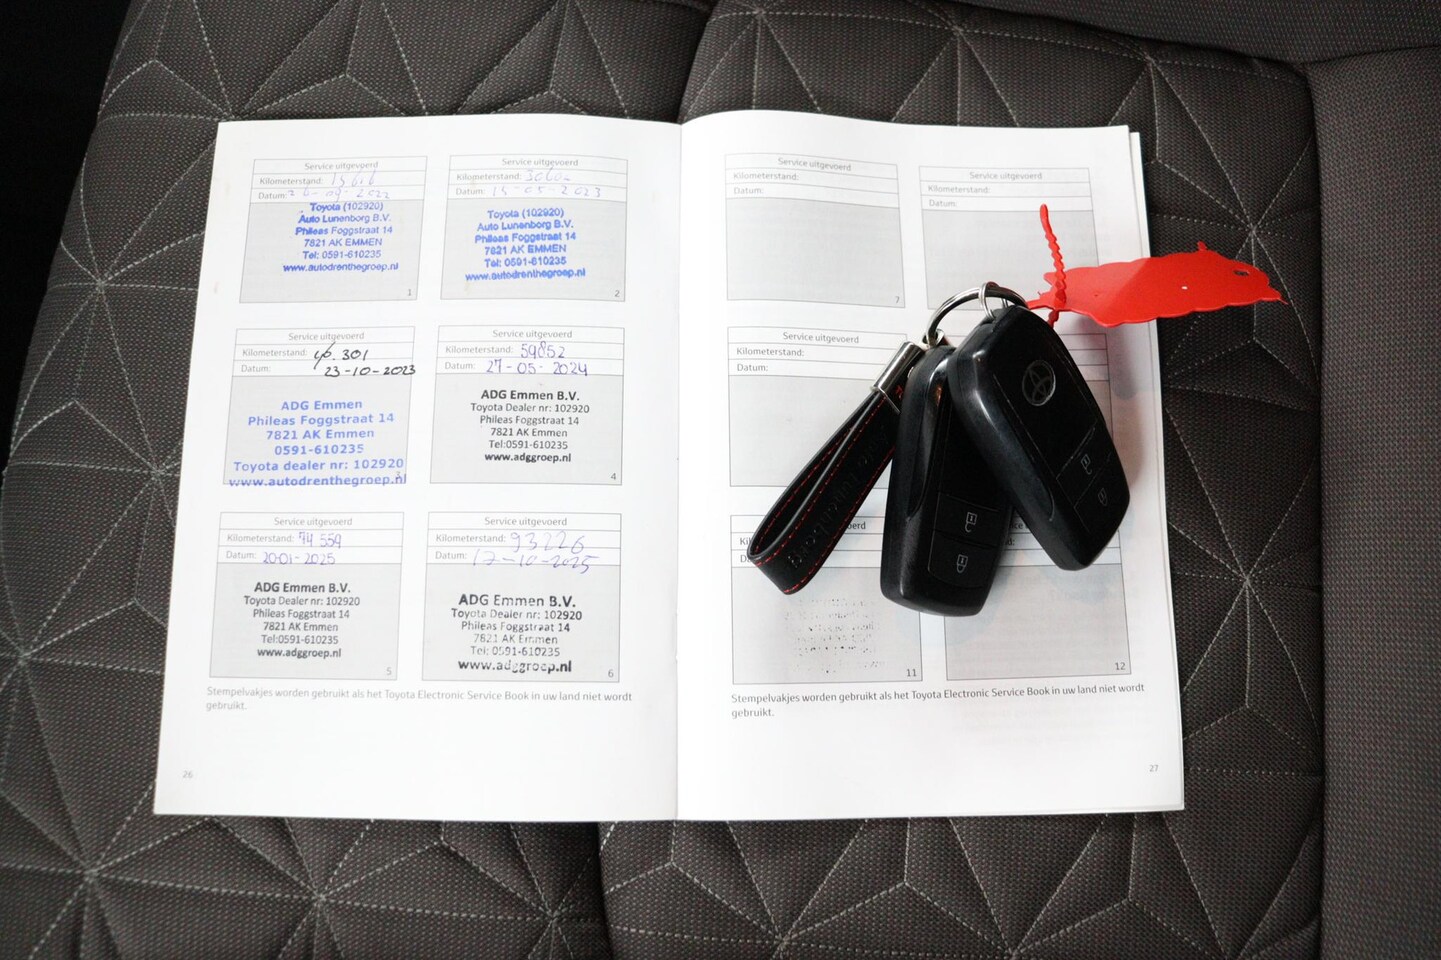 Service uitgevoerd
Kilometerstand: 15616
Datum: 20-09-2022
Toyota (102920)
Auto Lunenborg B.V.
Phileas Foggstraat 14
7821 AK EMMEN
Tel: 0591-610235
www.autodrenthegroep.nl
1
Service uitgevoerd
Kilometerstand:
Datum: 15-05-2023
Toyota (102920)
Auto Lunenborg B.V.
Phileas Foggstraat 14
7821 AK EMMEN
Tel: 0591-610235
www.autodrenthegroep.nl
2
Service uitgevoerd
Kilometerstand: 46.301
Datum: 23-10-2023
ADG Emmen
Phileas Foggstraat 14
7821 AK Emmen
0591-610235
Toyota dealer nr: 102920
www.autodrenthegroep.nl
3
Service uitgevoerd
Kilometerstand: 59852
Datum: 27-05-2024
ADG Emmen B.V.
Toyota Dealer nr: 102920
Phileas Foggstraat 14
7821 AK Emmen
Tel:0591-610235
www.adggroep.nl
4
Service uitgevoerd
Kilometerstand: 74 559
Datum: 20-01-2025
ADG Emmen B.V.
Toyota Dealer nr: 102920
Phileas Foggstraat 14
7821 AK Emmen
Tel:0591-610235
www.adggroep.nl
5
Service uitgevoerd
Kilometerstand: 93226
Datum: 17-10-2025
ADG Emmen B.V.
Toyota Dealer nr: 102920
Phileas Foggstraat 14
7821 AK Emmen
Tel: 0591-610235
www.adggroep.nl
6
Stempelvakjes worden gebruikt als het Toyota Electronic Service Book in uw land niet wordt
gebruikt.
26
Service uitgevoerd
Kilometerstand:
Datum:
7
Service uitgevoerd
Kilometerstand:
Datum:
Service uitgevoerd
Kilometerstand:
Datum:
11
12
Stempelvakjes worden gebruikt als het Toyota Electronic Service Book in uw land niet wordt
gebruikt.
27